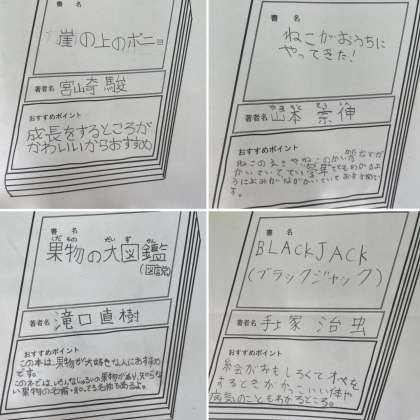 書 名
崖の上のポニョ
著者名 宮崎 駿
おすすめポイント
成長をするところが
かわいいからおすすめ
書 名
ねこがおうちに
やってきた!
著者名 山本 宗伸
やまもと そうしん
おすすめポイント
ねこのえ
書 名
果物の大図鑑
くだもの だいず かん
(図鑑)
著者名 滝口直樹
おすすめポイント
この本は、果物が大好きな人におすすめ
です。
この本では、いろんなしゅるいの果物があり、知らな
い果物の名前・知ってる名前もあるよ。
書 名
BLACKJACK
(ブラックジャック)
著者名 手塚 治虫
おすすめポイント
絵がおもしろくてオペを
するときがかっこいい体や
病気のこともわかるところ。